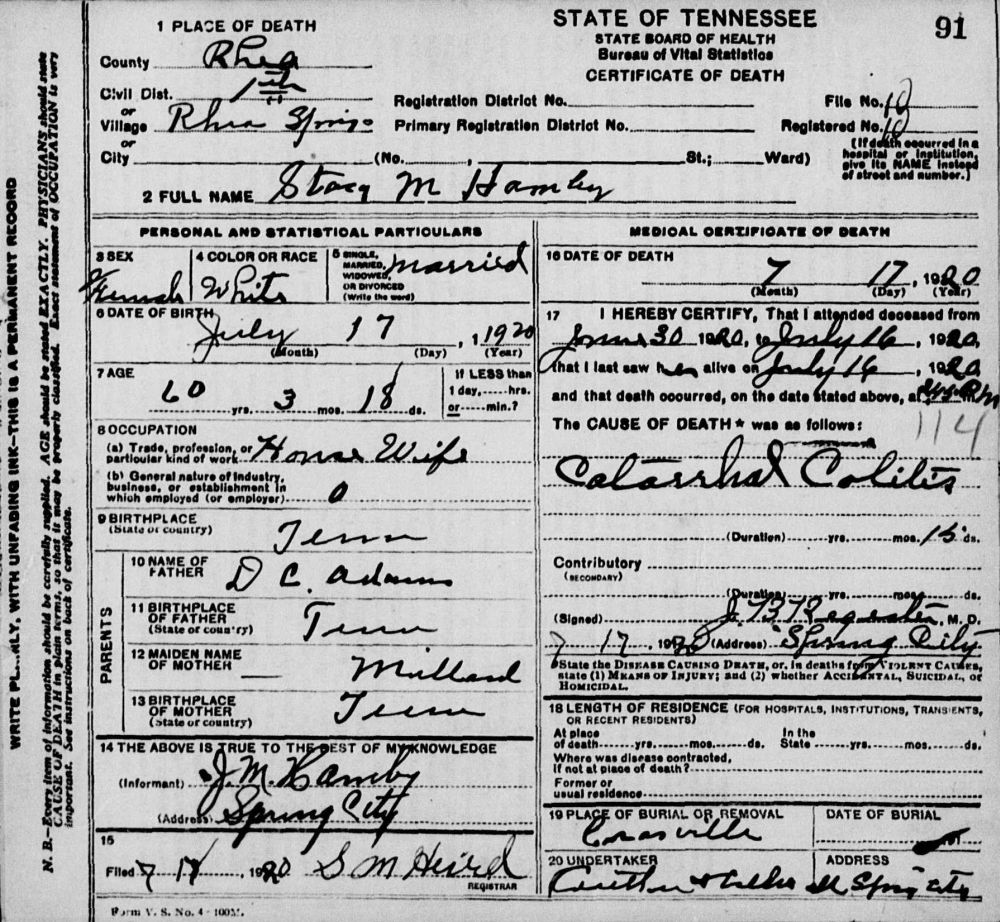 1 PLACE OF DEATH
County Rhea
Civil Dist. 1st
or
Village Rhea Springs
or
City (No. , St.; Ward)
2 FULL NAME Stacy M Hamby
STATE OF TENNESSEE
STATE BOARD OF HEALTH
Bureau of Vital Statistics
CERTIFICATE OF DEATH
91
Registration District No. File No. 10
Primary Registration District No. Registered No. 10
(If death occurred in a
hospital or institution,
give its NAME instead
of street and number.)
PERSONAL AND STATISTICAL PARTICULARS
3 SEX
Female
4 COLOR OR RACE
White
5 SINGLE,
MARRIED,
WIDOWED,
OR DIVORCED
(Write the word)
Married
6 DATE OF BIRTH
July 17, 1 1920
(Month) (Day) (Year)
7 AGE
60 yrs. 3 mos. 18 ds.
If LESS than
1 day, hrs.
or min.?
8 OCCUPATION
(a) Trade, profession, or
particular kind of work House Wife
(b) General nature of industry,
business, or establishment in
which employed (or employer) 0
9 BIRTHPLACE
(State or country)
Tenn
PARENTS
10 NAME OF
FATHER
D C. Adams
11 BIRTHPLACE
OF FATHER
(State or country)
Tenn
12 MAIDEN NAME
OF MOTHER
— Millard
13 BIRTHPLACE
OF MOTHER
(State or country)
Tenn
14 THE ABOVE IS TRUE TO THE BEST OF MY KNOWLEDGE
(Informant) J. M. Hamby
(Address) Spring City
15
Filed 7 17, 1920 S M Heird
REGISTRAR
MEDICAL CERTIFICATE OF DEATH
16 DATE OF DEATH
7 17, 1920
(Month) (Day) (Year)
17 I HEREBY CERTIFY, That I attended deceased from
June 30 1920, to July 16, 1920,
that I last saw her alive on July 16, 1920,
and that death occurred, on the date stated above, at M.
The CAUSE OF DEATH* was as follows:
114
Catarrhal Colitis
(Duration) yrs. mos. 15 ds.
Contributory
(SECONDARY)
(Duration) yrs. mos. ds.
(Signed) M. D.
7 17, 1920 (Address) Spring City
*State the DISEASE CAUSING DEATH, or, in deaths from VIOLENT CAUSES,
state (1) MEANS OF INJURY; and (2) whether ACCIDENTAL, SUICIDAL, or
HOMICIDAL.
18 LENGTH OF RESIDENCE (FOR HOSPITALS, INSTITUTIONS, TRANSIENTS,
OR RECENT RESIDENTS)
At place
of death yrs. mos. ds.
In the
State yrs. mos. ds.
Where was disease contracted,
if not at place of death?
Former or
usual residence
19 PLACE OF BURIAL OR REMOVAL
DATE OF BURIAL
20 UNDERTAKER
ADDRESS
Spring City
Form V. S. No. 4-100M.
WRITE PLAINLY, WITH UNFADING INK—THIS IS A PERMANENT RECORD
N. B.—Every item of information should be carefully supplied. AGE should be stated EXACTLY. PHYSICIANS should state
CAUSE OF DEATH in plain terms, so that it may be properly classified. Exact statement of OCCUPATION is very
important. See instructions on back of certificate.